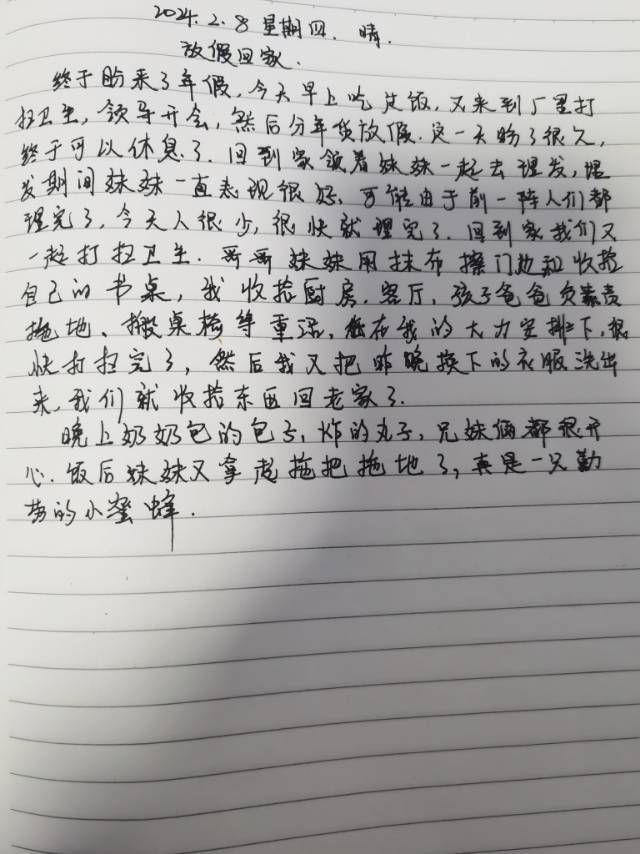 2024.2.8 星期四. 晴.
放假回家.
终于盼来了年假,今天早上吃过饭,又来到厂里打
扫卫生,领导开会,然后分年货放假.这一天盼了很久,
终于可以休息了.回到家领着妹妹一起去理发,理
发期间妹妹一直表现很好,可能由于前一阵人们都
理完了,今天人很少,很快就理完了.回到家我们又
一起打扫卫生.哥哥妹妹用抹布擦门边和收拾
自己的书桌,我收拾厨房.客厅,孩子爸爸负责
拖地、搬桌椅等重活,在我的大力安排下,很
快打扫完了,然后我又把昨晚换下的衣服洗出
来,我们就收拾东西回老家了.
晚上奶奶包的包子,炸的丸子,兄妹俩都很开
心.饭后妹妹又拿起拖把拖地了,真是一只勤
劳的小蜜蜂.